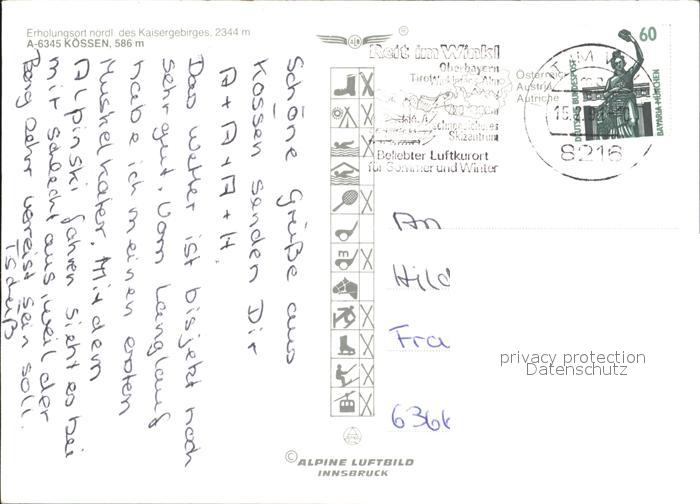 Erholungsort nördl. des Kaisergebirges, 2344 m
A-6345 KÖSSEN, 586 m
Schöne Grüße aus
Kössen senden Dir
A + A + A + H.
Das Wetter ist bis jetzt noch
sehr gut. Vom Langlauf
habe ich meinen ersten
Muskelkater. Mit dem
Alpinski fahren sieht es bei
mir schlecht aus, weil der
Berg sehr vereist sein soll.
Tschüß
Reit im Winkl
Oberbayern
Skizentrum
Beliebter Luftkurort
für Sommer und Winter
Österreich
Austria
Autriche
60
DEUTSCHE BUNDESPOST
BAVARIA MÜNCHEN
8216
An
Hild
Fra
636
privacy protection
Datenschutz
© ALPINE LUFTBILD
INNSBRUCK